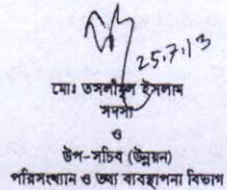 25.7.13
মোঃ তসলীমুল ইসলাম
সদস্য
ও
উপ-সচিব (উন্নয়ন)
পরিসংখ্যান ও তথ্য ব্যবস্থাপনা বিভাগ